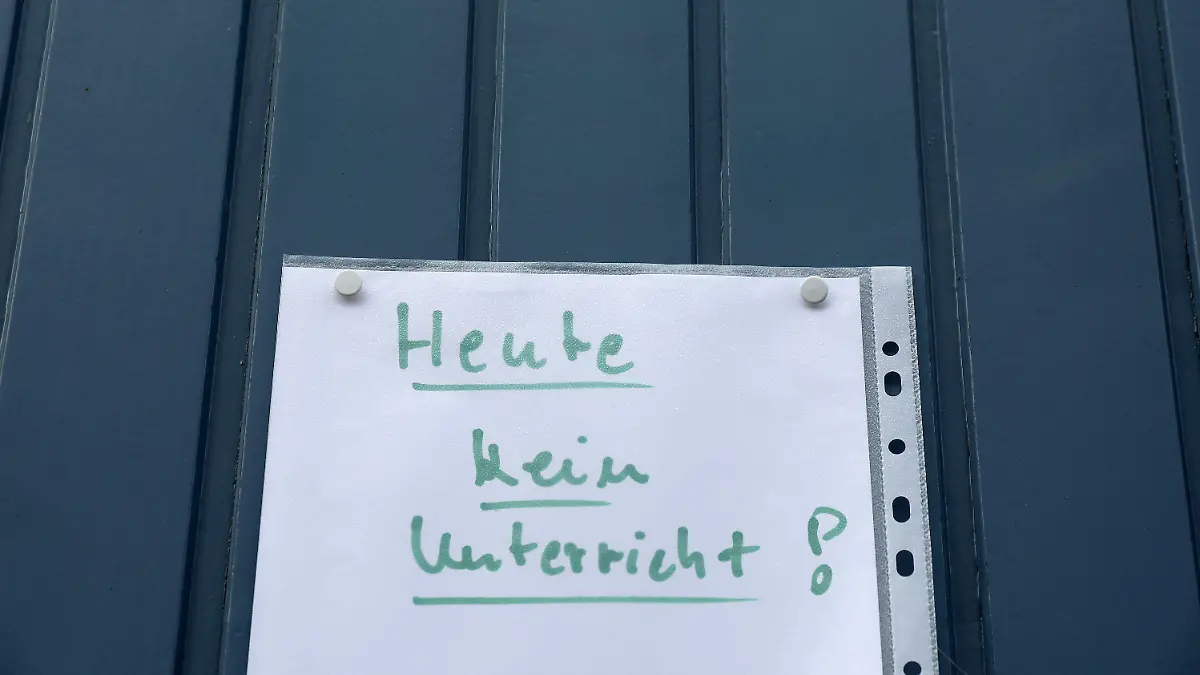 Heute
kein
Unterricht !